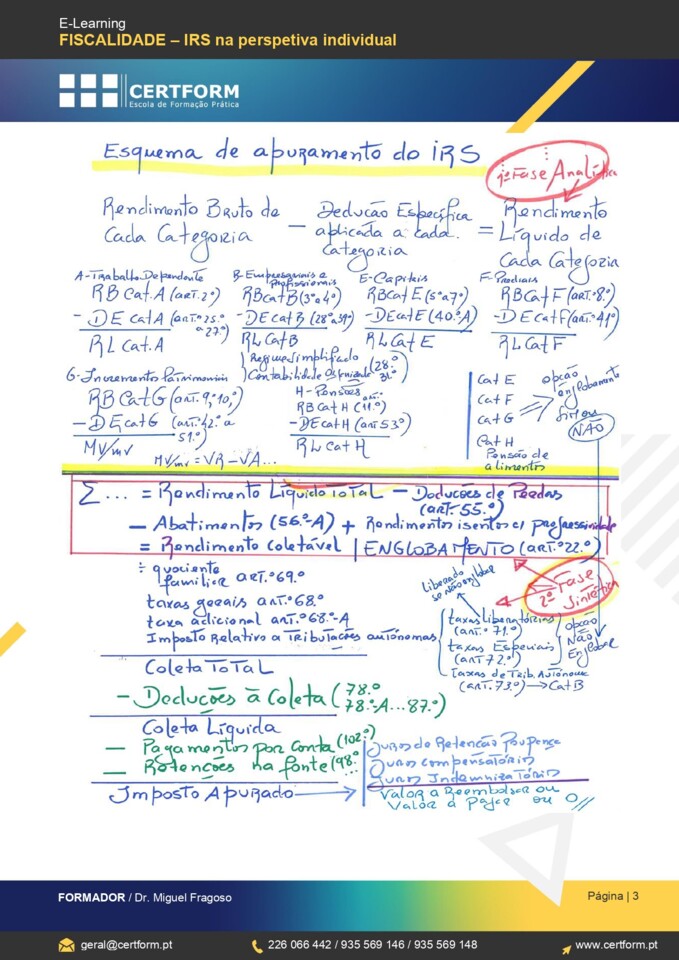 E-Learning
FISCALIDADE – IRS na perspetiva individual
CERTFORM
Escola de Formação Prática
Esquema de apuramento do IRS
1ª Fase Analítica
Rendimento Bruto de Cada Categoria – Dedução Específica aplicada a cada Categoria = Rendimento Líquido de Cada Categoria
A-Trabalho Dependente
RB Cat. A (art. 2º)
- DE cat A (art. º25.º a 27º)
RL Cat. A
B-Empresariais e Profissionais
RB Cat B (3º a 4º)
- DE cat B (28º a 39º)
RL Cat B
Regime Simplificado (28.º
Contabilidade Organizada 31º)
E-Capitais
RB Cat E (5º a 7º)
- DE cat E (40.º A)
RL Cat E
F-Prediais
RB Cat F (art. º8.º)
- DE cat F (art. 41º)
RL Cat F
G-Incremento Patrimoniais
RB Cat G (art. 9, 10,º)
- DE cat G (art. º42.º a 51º)
MV/mv
MV/mv = VR - VA...
H-Pensões...
RB Cat H (11º)
- DE cat H (art 53º)
RL Cat H
Cat E
Cat F
Cat G
Cat H
Pensão de alimentos
opção englobamento
NÃO
Σ ... = Rendimento Líquido Total – Deduções de Perdas (art. 55.º)
– Abatimentos (56.º-A) + Rendimentos isentos c/ progressividade
= Rendimento coletável | ENGLOBAMENTO (art. º22.º)
÷ quociente familiar art. º69.º
taxas gerais art. º68.º
taxa adicional art. º68.º-A
Imposto Relativo a Tributações autónomas
2ª Fase Sintética
Liberado se não englobar
taxas Liberatórias (art. º 71.º)
taxas Especiais (art 72.º)
Taxas de Trib. Autónoma (art. 73º) → Cat B
opção Não Englobar
Coleta Total
– Deduções à Coleta (78.º 78.º-A...87.º)
Coleta Líquida
– Pagamentos por conta (102º)
– Retenções na fonte (98º
Imposto Apurado →
Juros de Retenção Poupança
Juros compensatórios
Juros Indemnizatórios
Valor a Reembolsar ou
Valor a Pagar ou 0//
FORMADOR / Dr. Miguel Fragoso
Página | 3
geral@certform.pt
226 066 442 / 935 569 146 / 935 569 148
www.certform.pt